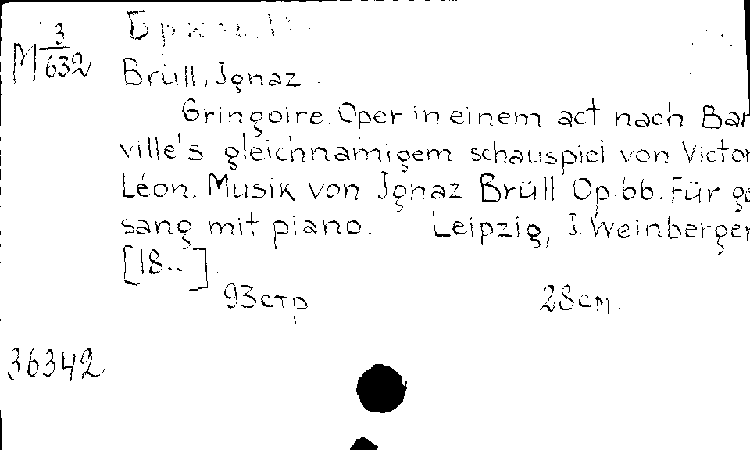 М 3/632
Brüll, Jgnaz.
Gringoire. Oper in einem act nach Bar
ville's gleichnamigem schauspiel von Victor
Léon. Musik von Jgnaz Brüll Op.66. Für ge
sang mit piano. Leipzig, J. Weinberger
[18..].
93 стр 28 см.
36342